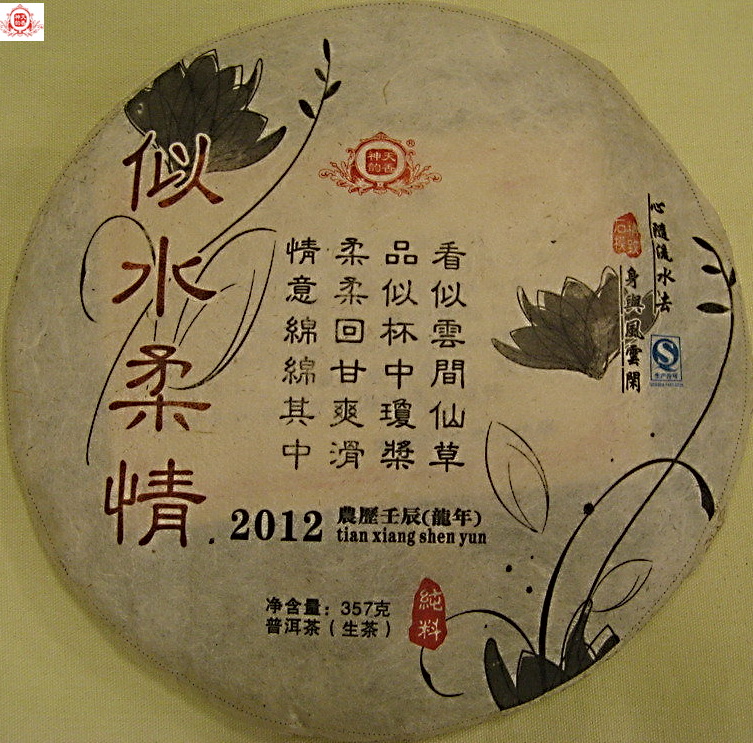 似水柔情
天香
神韵
®
看似雲間仙草
品似杯中瓊漿
柔柔回甘爽滑
情意綿綿其中
心隨流水去
身與風雲閑
石模
2012
農歷壬辰(龍年)
tian xiang shen yun
净含量：357克
普洱茶（生茶）
純料